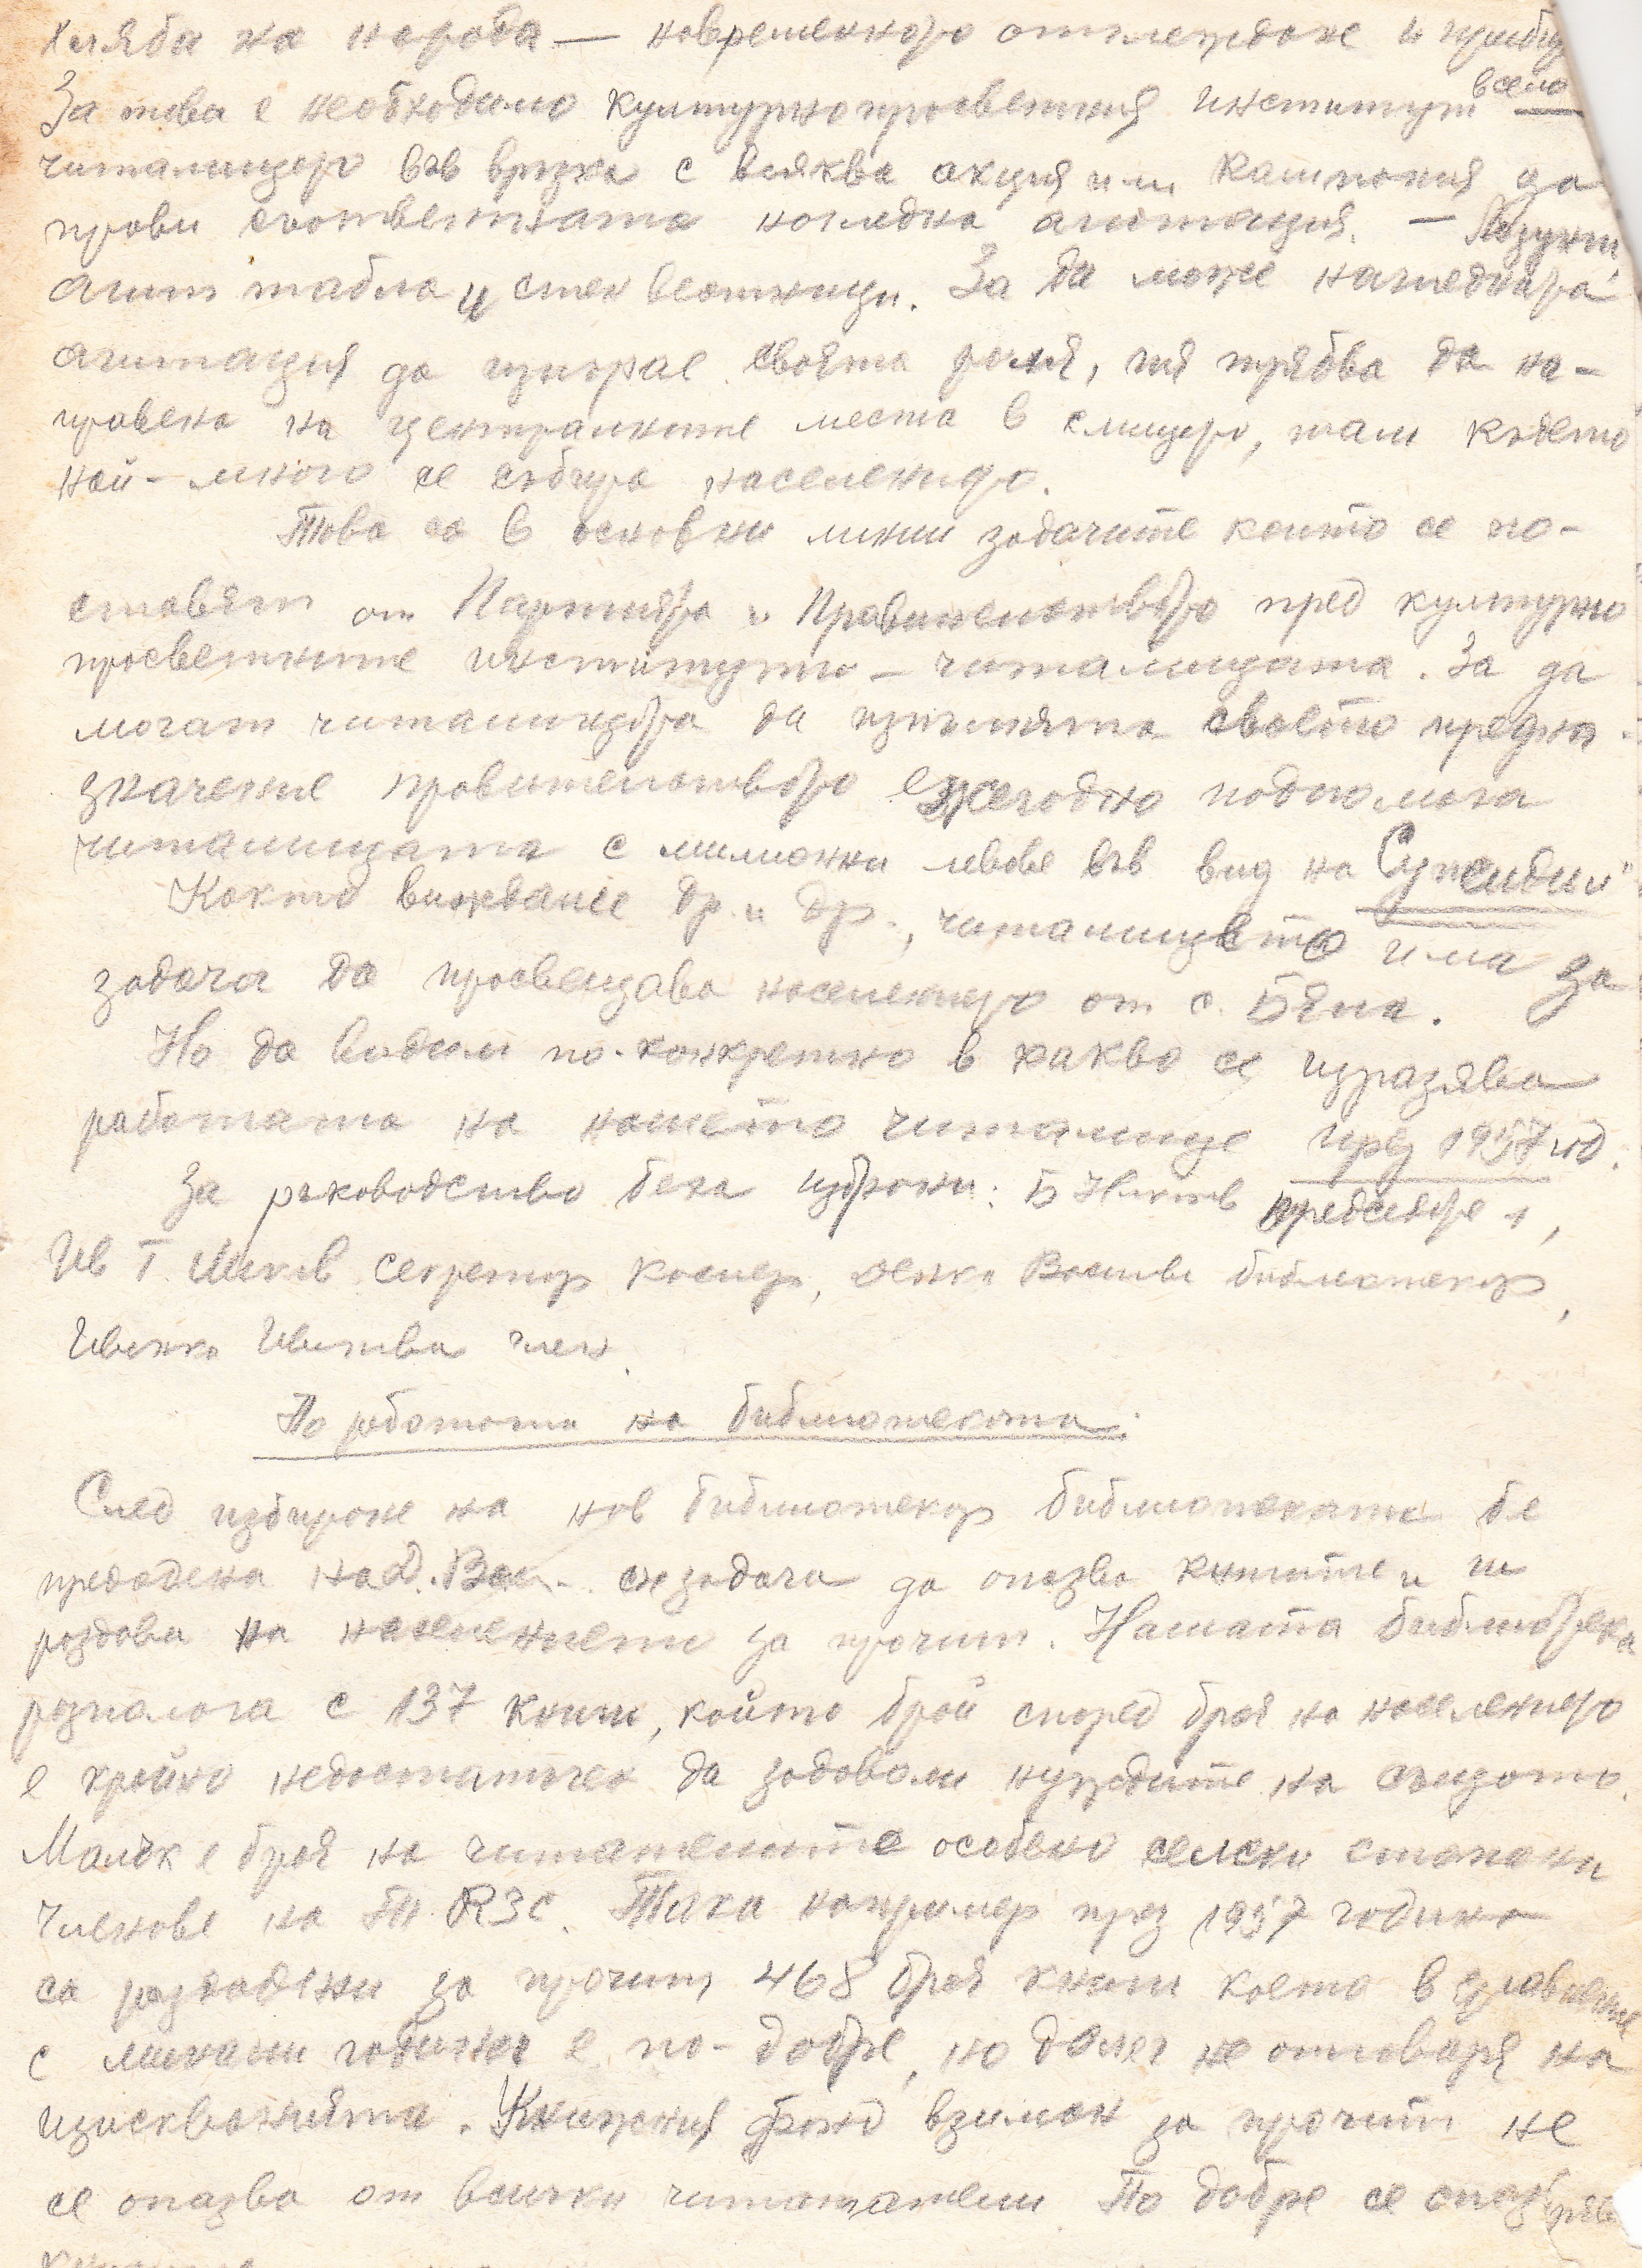 хляба на народа — навременното отглеждане и прибир
За това е необходимо културнопросветния институт в село
читалището във връзка с всяква акция или кампания да
прави съответната нагледна агитация. — Лозунги,
агит табла и стен вестници. За да може нагледната
агитация да изиграе своята роля, тя трябва да на-
правена на централните места в селището, там където
най-много се събира населението.
Това са в основни линии задачите които се по-
ставят от Партията и Правителството пред културно
просветните институти – читалищата. За да
могат читалищата да изпълнята своето предна-
значение правителството ежегодно подпомага
читалищата с милиони левове във вид на Субсидии
Както виждаме др. и др., читалището има за
задача да просвещава населението от с. Бяла.
Но да видим по-конкретно в какво се изразява
работата на нашето читалище през 1957 год.
За ръководство беха избрани: Б Председател,
Ив Т. секретар касиер, Денка Василева библиотекар,
Иванка член.
По работата на библиотеката.
След избиране на нов библиотекар библиотеката бе
предадена на Д. Вас. със задача да опазва книгите и ги
раздава на населението за прочит. Нашата библиотека
разполага с 137 книги, който брой според броя на населението
е крайно недостатъчен да задоволи нуждите на същото.
Малък е броя на читателите особено селски стопани
членове на ТКЗС. Така например през 1957 година
са раздадени за прочит 468 броя книги което в сравнение
с минали години е по-добре, но далеч не отговаря на
изискванията. Книжния фонд взиман за прочит не
се опазва от всички читатели. По добре се